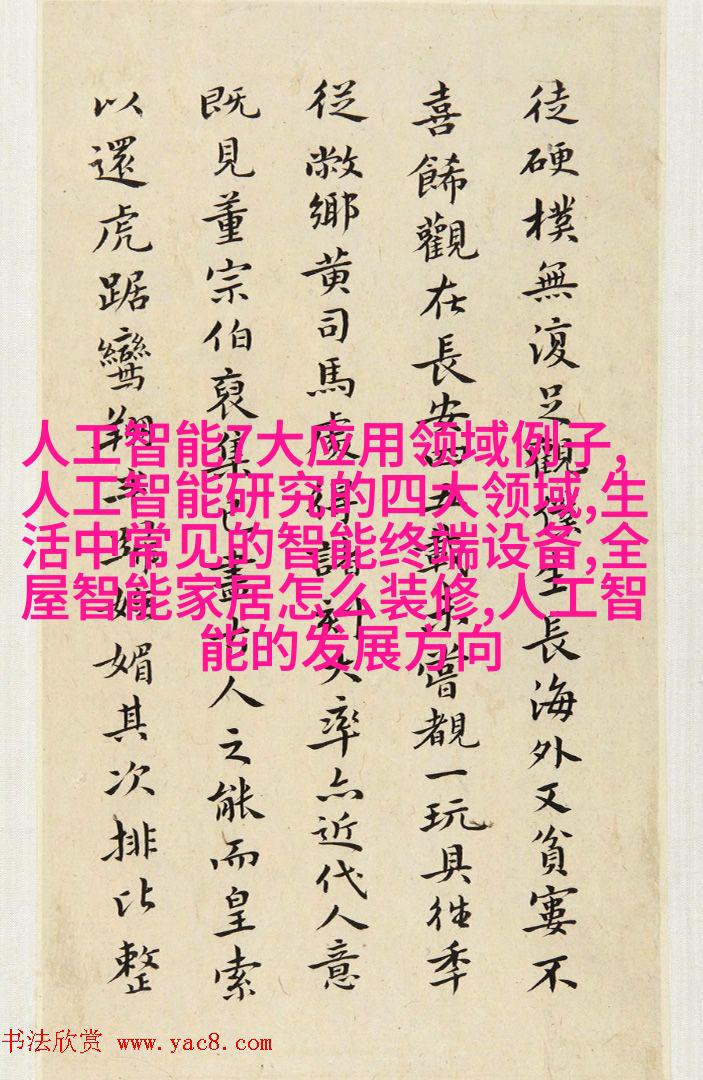 徒硬樸無復足觀僕生長海外又貧窶不
喜餙觀在長安四五載未嘗覩一玩具往季
從敝鄉黄司馬處得諸刻大率亦近代人意
既見董宗伯裒集已盡古人之能而皇索
以還虎踞鸞翔媚其次排比整
人工智能7大应用领域例子,
人工智能研究的四大领域,生
活中常见的智能终端设备,全
屋智能家居怎么装修,人工智
能的发展方向
书法欣赏 www.yac8.com